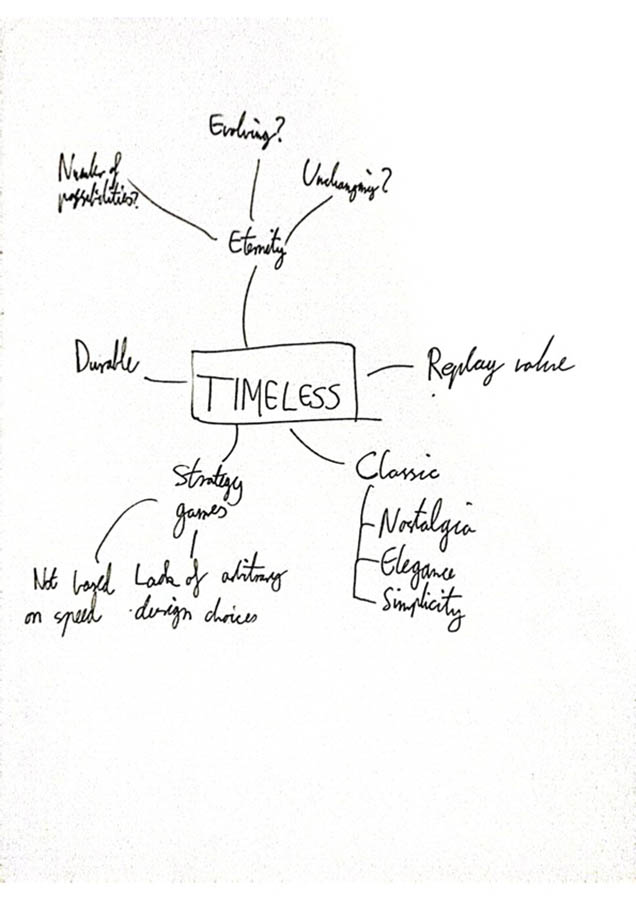 Evolving?
Number of
possibilities?
Unchanging?
Eternity
Durable
TIMELESS
Replay value
Strategy
games
Classic
Nostalgia
Elegance
Simplicity
Not based
on speed
Lack of arbitrary
design choices